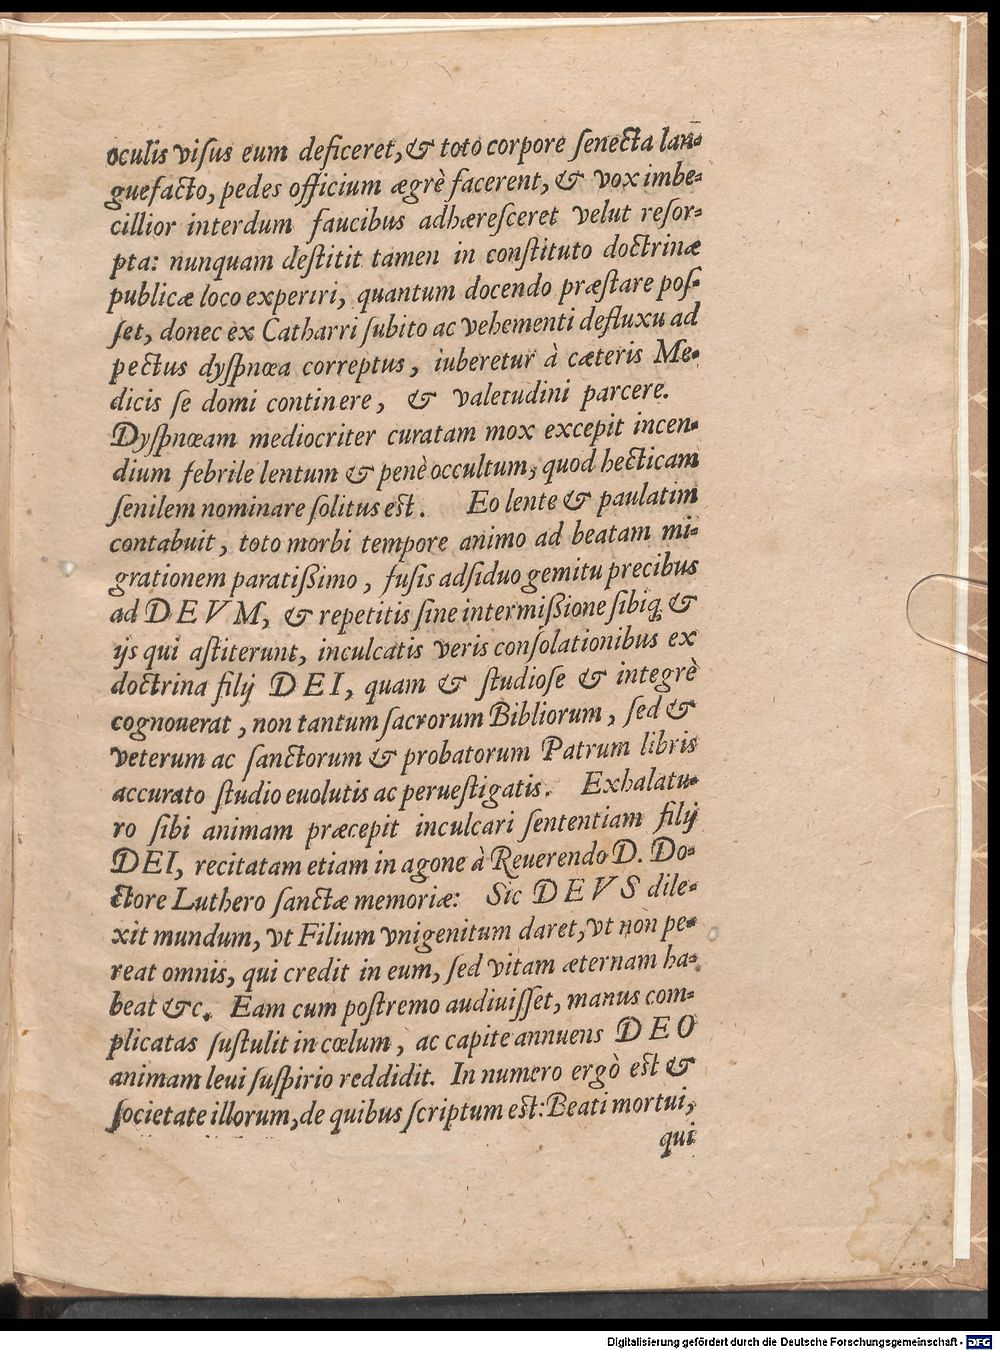 oculis viſus eum deficeret, & toto corpore ſenecta lan⸗
guefacto, pedes officium ægrè facerent, & vox imbe⸗
cillior interdum faucibus adhæreſceret velut reſor⸗
pta: nunquam deſtitit tamen in conſtituto doctrinæ
publicæ loco experiri, quantum docendo præſtare poſ⸗
ſet, donec ex Catharri ſubito ac vehementi defluxu ad
pectus dyſpnœa correptus, iuberetur à cæteris Me⸗
dicis ſe domi continere, & valetudini parcere.
Dyſpnœam mediocriter curatam mox excepit incen⸗
dium febrile lentum & penè occultum, quod hecticam
ſenilem nominare ſolitus est. Eo lente & paulatim
contabuit, toto morbi tempore animo ad beatam mi⸗
grationem paratißimo, fuſis adſiduo gemitu precibus
ad DEVM, & repetitis ſine intermißione ſibiq́; &
ijs qui aſtiterunt, inculcatis veris conſolationibus ex
doctrina filij DEI, quam & ſtudioſe & integrè
cognouerat, non tantum ſacrorum Bibliorum, ſed &
veterum ac ſanctorum & probatorum Patrum libris
accurato ſtudio euolutis ac perueſtigatis. Exhalatu⸗
ro ſibi animam præcepit inculcari ſententiam filij
DEI, recitatam etiam in agone à Reuerendo D. Do⸗
ctore Luthero ſanctæ memoriæ: Sic DEVS dile⸗
xit mundum, vt Filium vnigenitum daret, vt non pe⸗
reat omnis, qui credit in eum, ſed vitam æternam ha⸗
beat &c. Eam cum poſtremo audiuiſſet, manus com⸗
plicatas ſuſtulit in cœlum, ac capite annuens DEO
animam leui ſuſpirio reddidit. In numero ergò est &
ſocietate illorum, de quibus ſcriptum est: Beati mortui,
qui
Digitalisierung gefördert durch die Deutsche Forschungsgemeinschaft - DFG